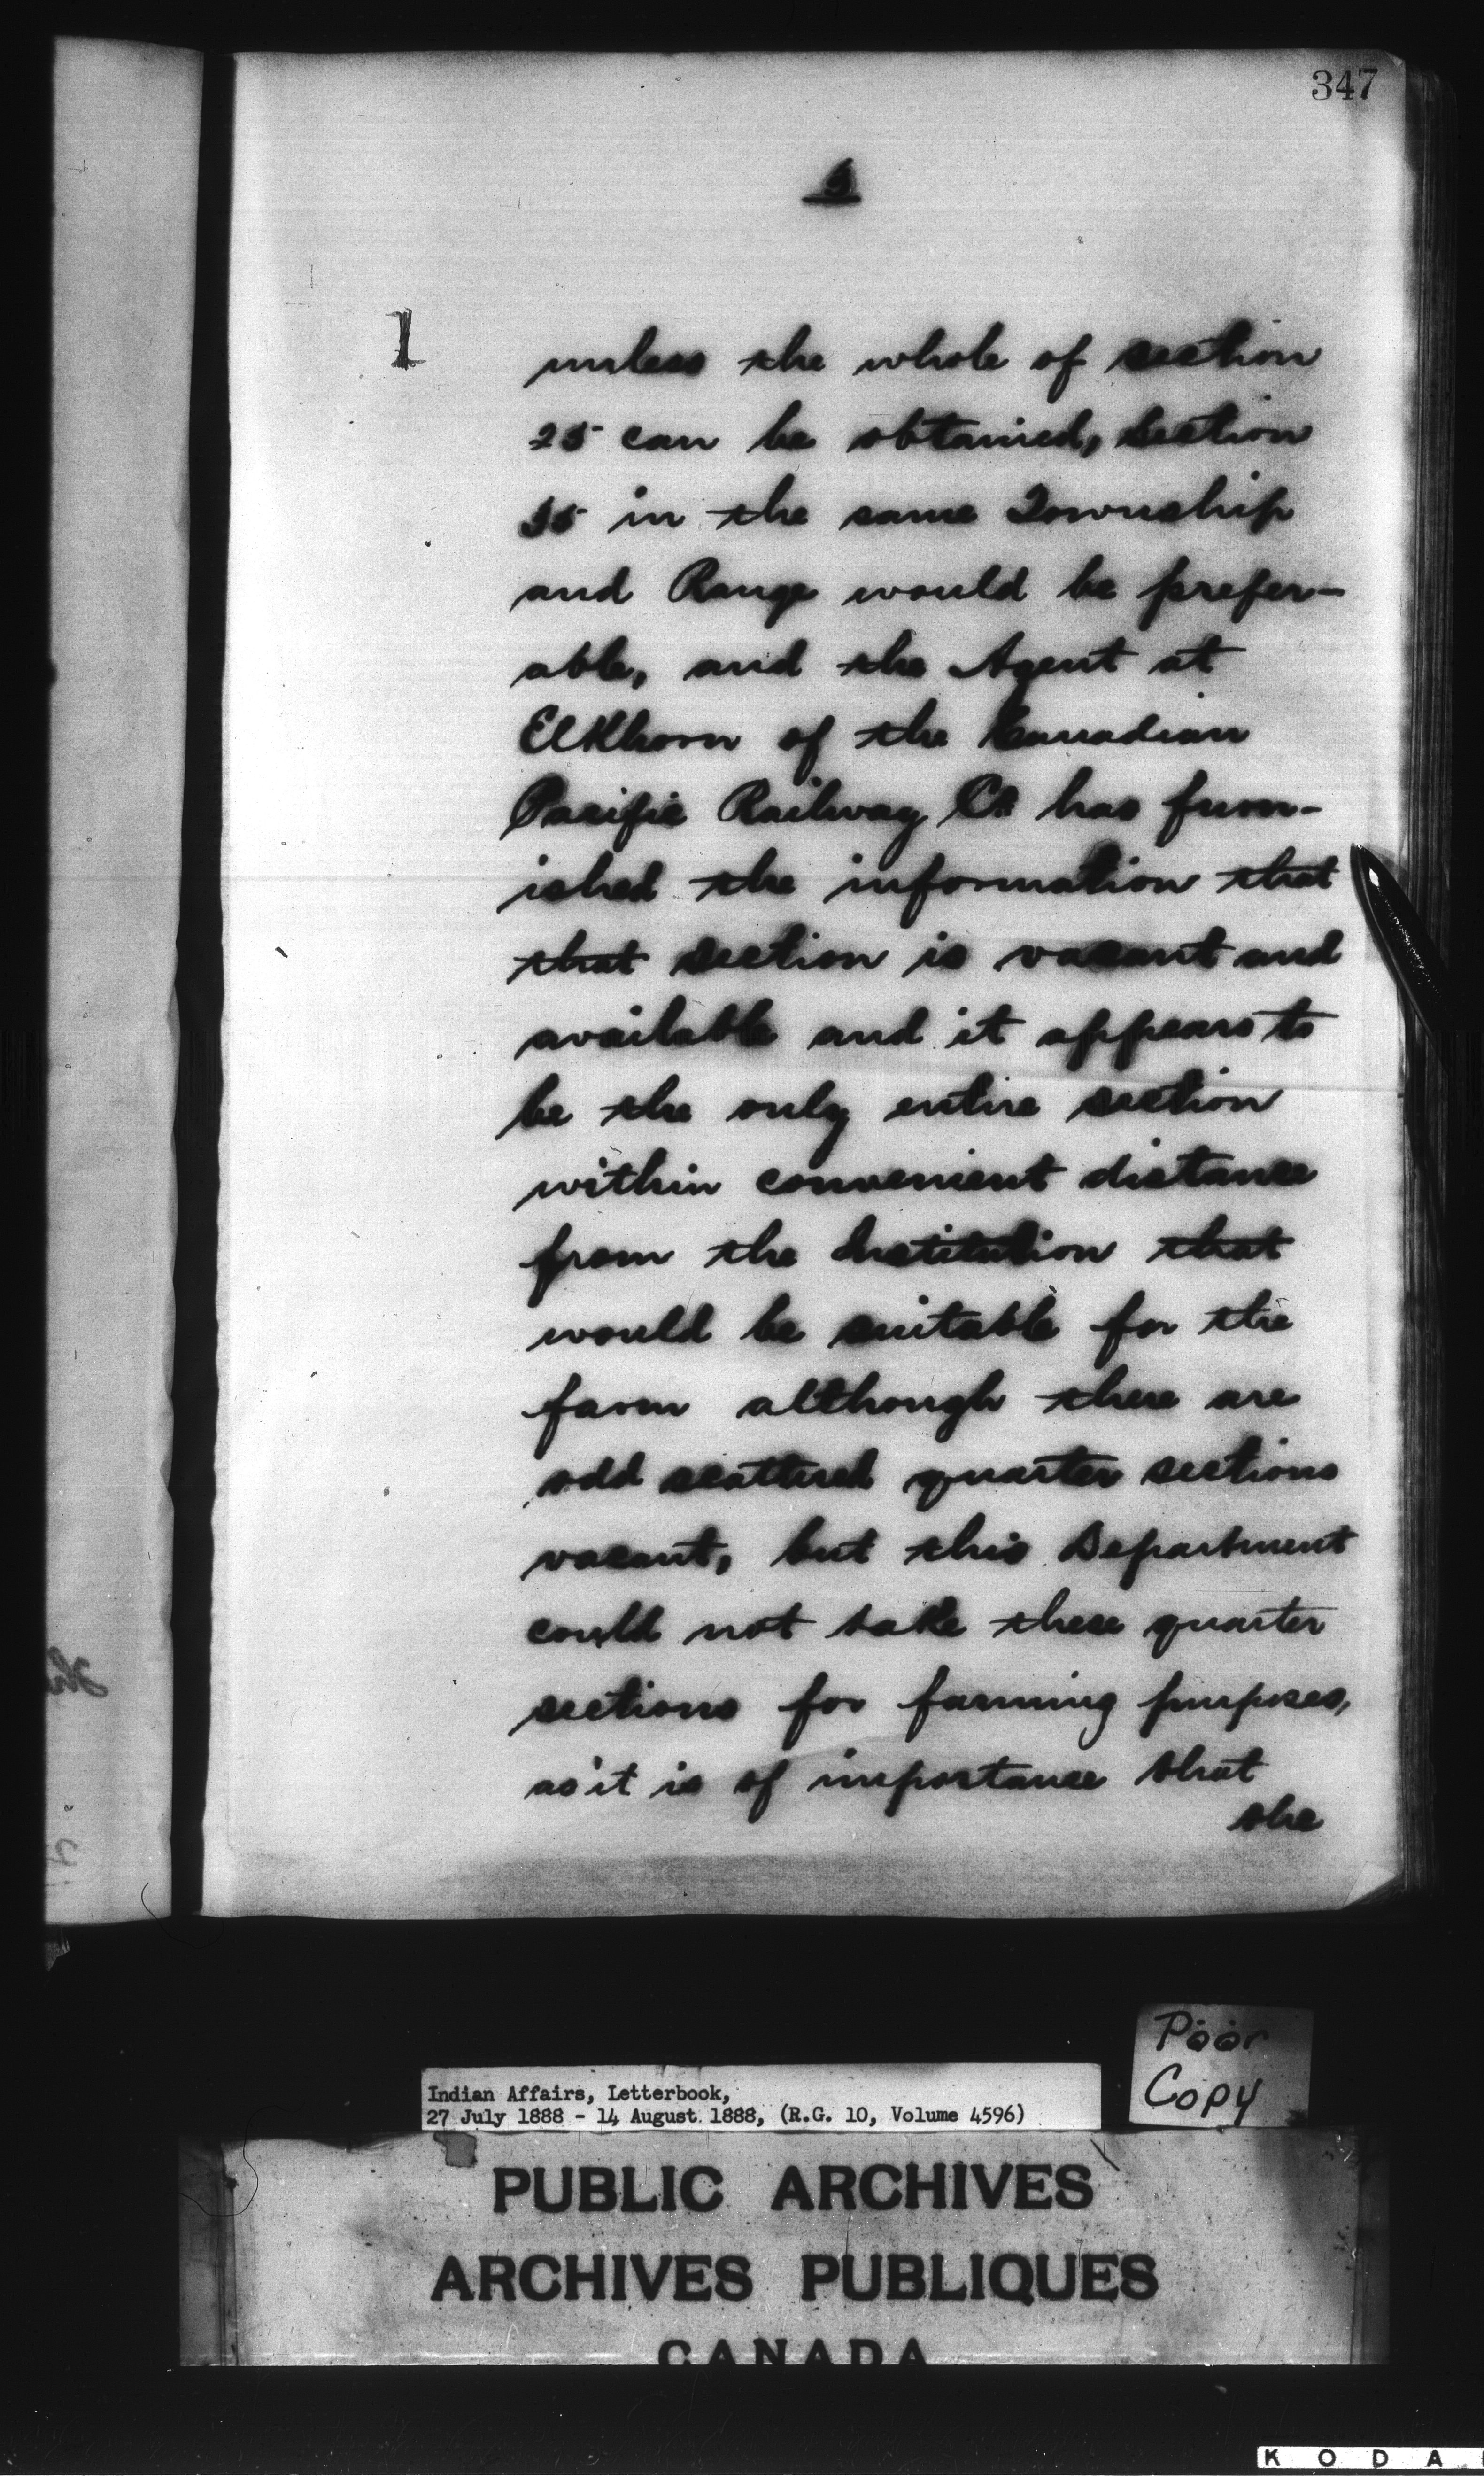 347
unless the whole of section
25 can be obtained, Section
35 in the same Township
and Range would be prefer-
able, and the Agent at
Elkhorn of the Canadian
Pacific Railway Co has furn-
ished the information that
that section is vacant and
available and it appears to
be the only entire section
within convenient distance
from the Institution that
would be suitable for the
farm although there are
odd scattered quarter sections
vacant, but this Department
could not take these quarter
sections for farming purposes,
as it is of importance that
the
Poor
Copy
Indian Affairs, Letterbook,
27 July 1888 - 14 August 1888, (R.G. 10, Volume 4596)
PUBLIC ARCHIVES
ARCHIVES PUBLIQUES
CANADA
KODA